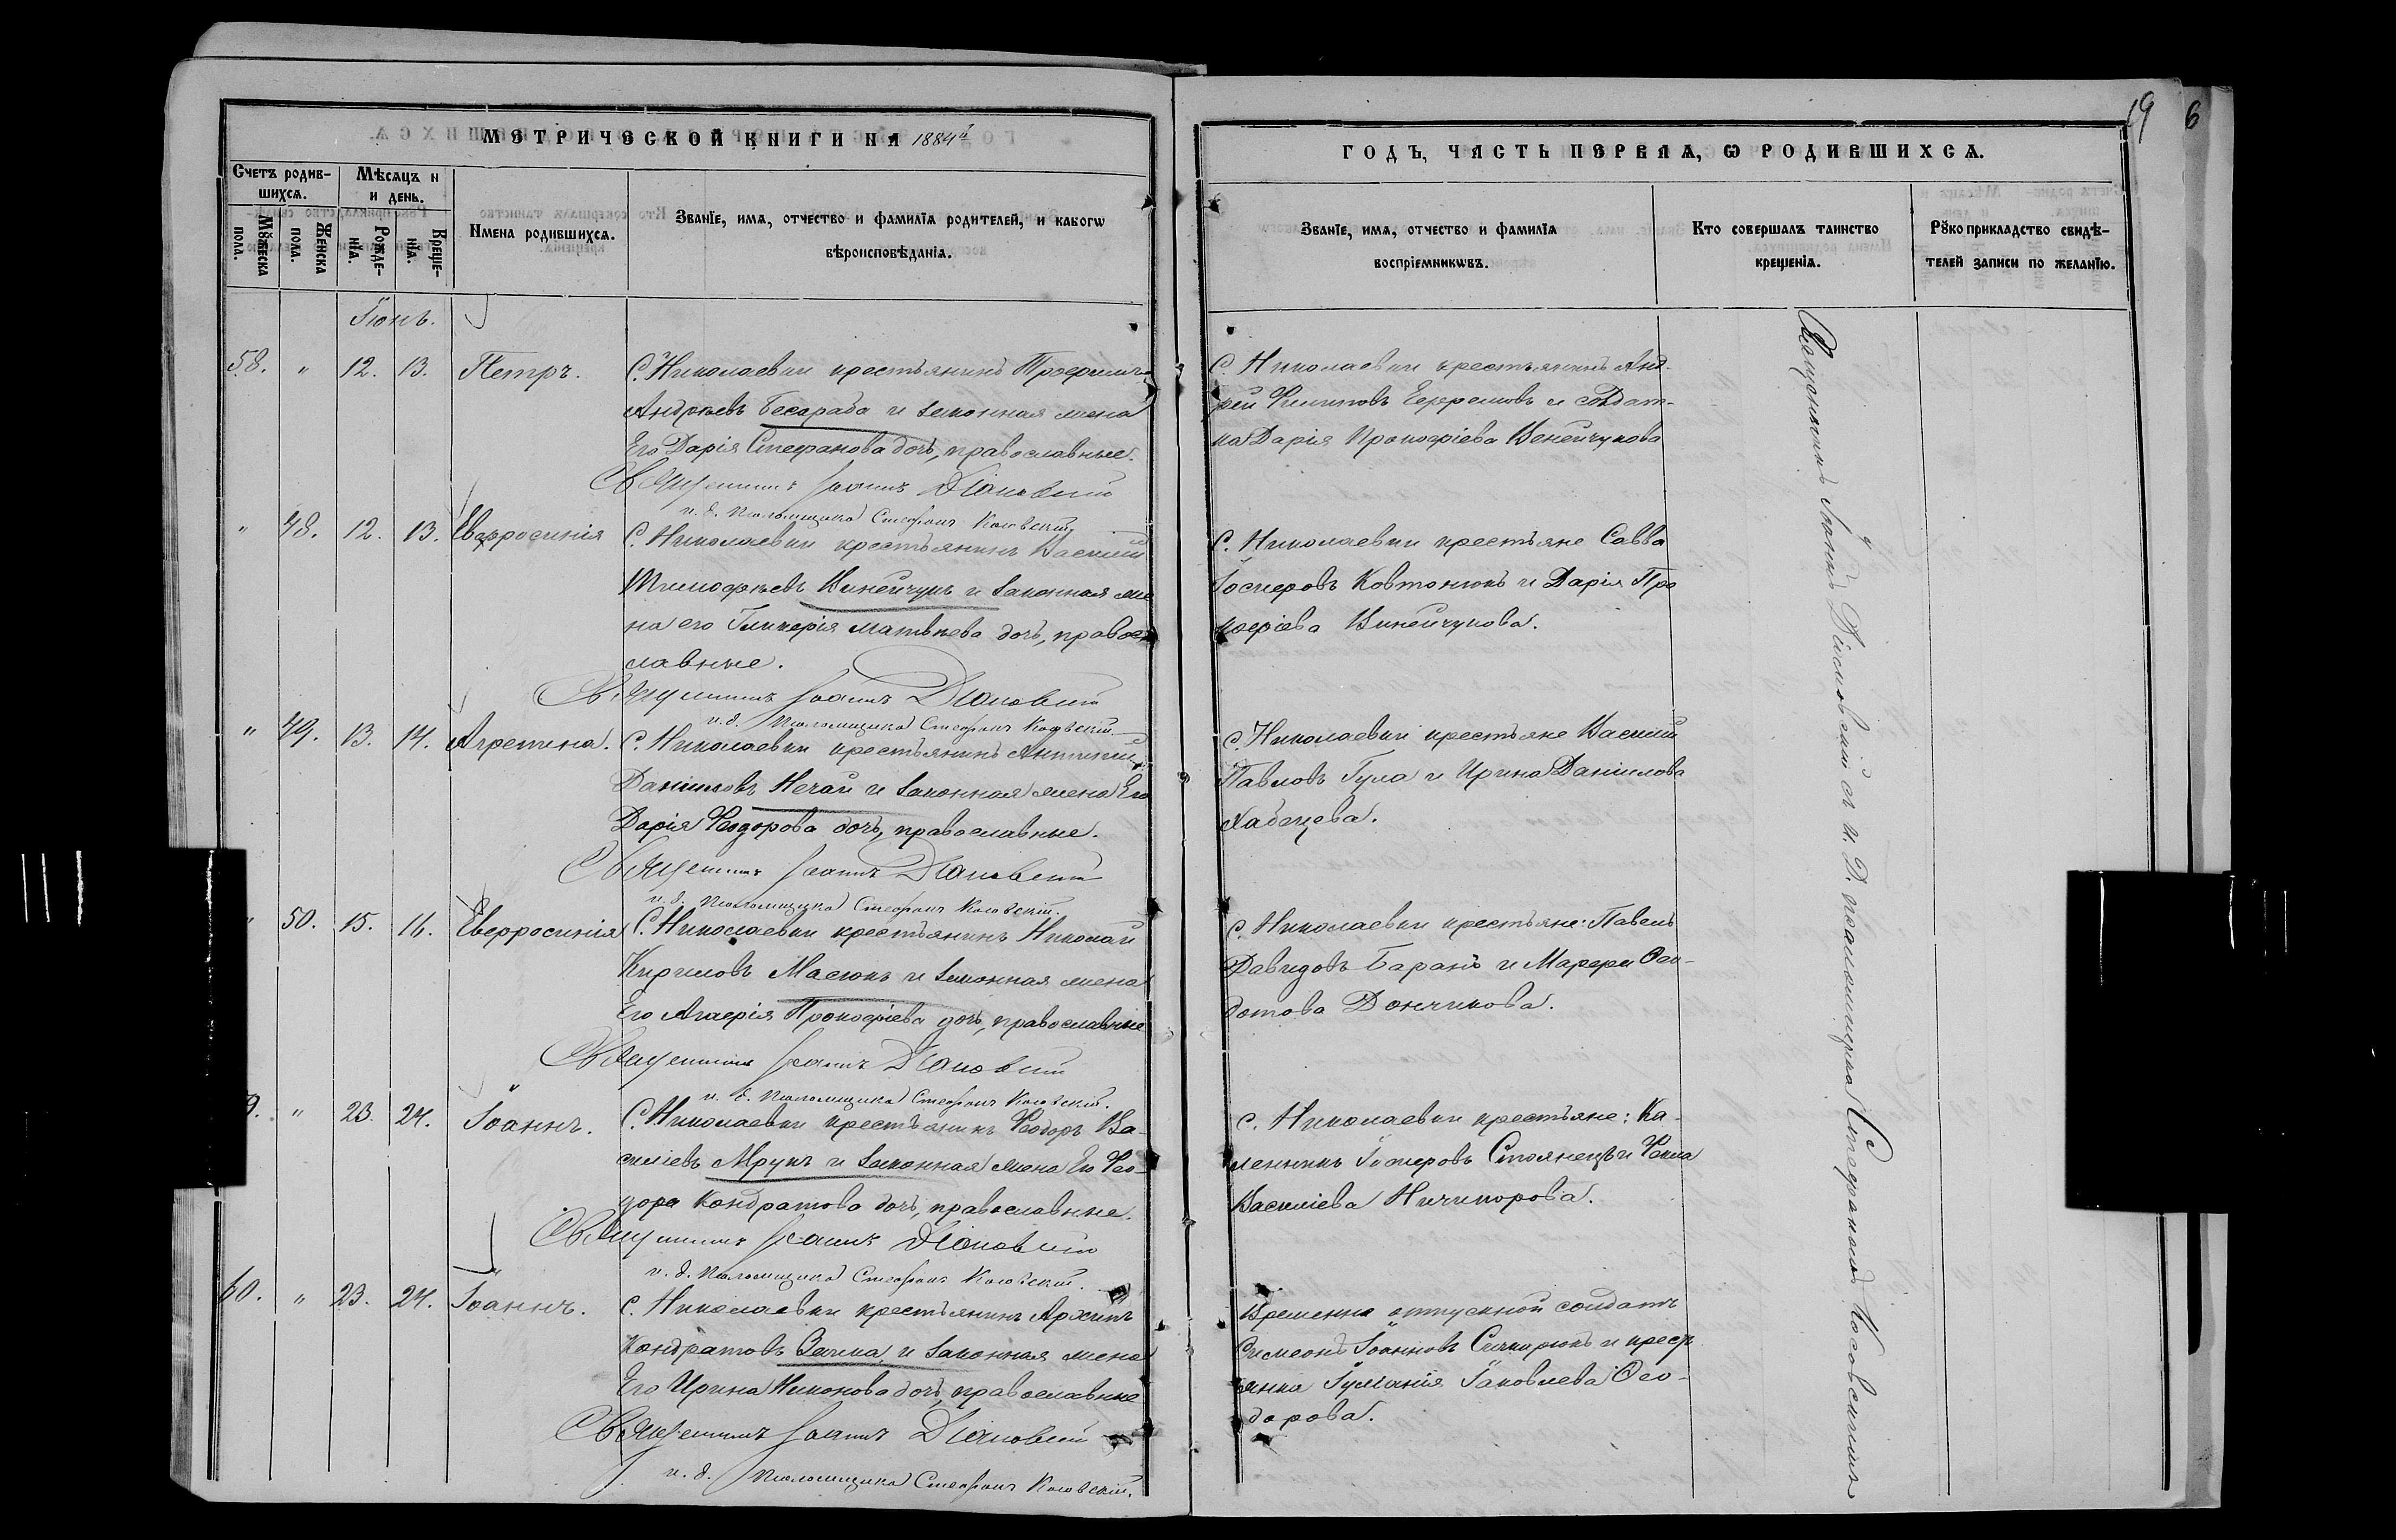 МЕТРИЧЕСКОЙ КНИГИ НА 1884й
Счетъ родив-
шихсѧ.
Мѣсѧцъ и
и день.
Мꙋжеска
пола.
Женска
пола.
Рожде-
нїѧ.
Креще-
нїѧ.
Имена родившихсѧ.
Званїе, имѧ, отчество и фамилїѧ родителей, и каковгѡ
вѣроисповѣданїѧ.
Іюнь.
58. " 12. 13. Петръ.
С. Николаевки крестьянинъ Трофимъ
Андрѣевъ Бесараба и законная жена
Его Дарія Стефанова дочь, православные.
Священникъ Іоаннъ Діановскій
и. д. Псаломщика Стефанъ Косовскій
" 48. 12. 13. Евфросинія
С. Николаевки крестьянинъ Василій
Тимофѣевъ Винейчукъ и законная же
на его Гликерія Матвѣева дочь, правос
славные.
Священникъ Іоаннъ Діановскій
и. д. Псаломщика Стефанъ Косовскій
" 49. 13. 14. Агрепина.
С. Николаевки крестьянинъ
Даниловъ Нечай и законная жена Его
Дарія Феодорова дочь, православные.
Священникъ Іоаннъ Діановскій
и. д. Псаломщика Стефанъ Косовскій.
" 50. 15. 16. Евфросинія
С. Николаевки крестьянинъ Николай
Кириловъ Масюкъ и законная жена
Его Агафія Прокофіева дочь, православные
Священникъ Іоаннъ Діановскій
и. д. Псаломщика Стефанъ Косовскій.
9. " 23. 24. Іоаннъ.
С. Николаевки крестьянинъ Феодоръ Ва-
силіевъ Мрукъ и законная жена Его Фео-
дора Кондратова дочь, православные.
Священникъ Іоаннъ Діановскій
и. д. Псаломщика Стефанъ Косовскій.
60. " 23. 24. Іоаннъ.
С. Николаевки крестьянинъ Архипъ
Кондратовъ Заика и законная жена
Его Ирина Никонова дочь, православные
Священникъ Іоаннъ Діановскій
и. д. Псаломщика Стефанъ Косовскій.
19 6
ГОДЪ, ЧАСТЬ ПЕРВАѦ, Ѡ РОДИВШИХСѦ.
Званїе, имѧ, отчество и фамилїѧ
воспрїемникѡвъ.
Кто совершалъ таинство
крещенїѧ.
Рꙋкоприкладство свидѣ-
телей записи по желанїю.
С. Николаевки крестьянинъ Анд-
рей Филиповъ Ефремовъ и солдат-
ка Дарія Прокофіева Винейчукова
С. Николаевки крестьяне Савва
Іосифовъ Ковтонюкъ и Дарія Про
кофіева Винейчукова.
С. Николаевки крестьяне Василій
Павловъ Гула и Ирина Даніилова
С. Николаевки крестьяне: Павелъ
Давидовъ Баранъ и Марфа Фео-
дотова Дончикова.
С. Николаевки крестьяне: Ка-
Іосифовъ Стоянецъ и Фекла
Василіева Ничипорова.
Временно отпускной солдатъ
Симеонъ Іоанновъ Сикорюкъ и крест
янка Іуліанія Іаковлева Фео-
дорова.
Священникъ Іоаннъ Діановскій съ и. д. псаломщика Стефаномъ Косовскимъ